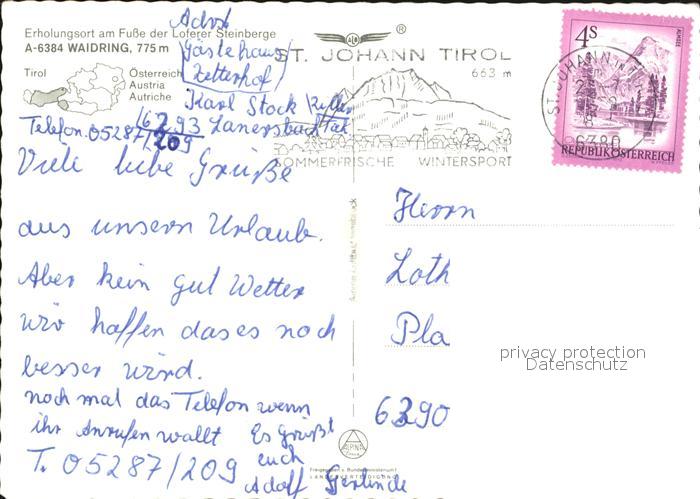 Erholungsort am Fuße der Loferer Steinberge
A-6384 WAIDRING, 775 m
Tirol
Österreich
Austria
Autriche
Gästehaus
Karl Stock
6293 Lanersbach
Telefon. 05287/209
Viele liebe Grüße
aus unsern Urlaub.
Aber kein gut Wetter
wir hoffen das es noch
besser wird.
noch mal das Telefon wenn
ihr Anrufen wallt Es Grüßt
euch
T. 05287/209 Adolf Gerlinde
ST. JOHANN TIROL
663 m
SOMMERFRISCHE WINTERSPORT
4S
ALMSEE
REPUBLIK ÖSTERREICH
ST. JOHANN IN
6380
Herrn
Loth
Pla
6290
privacy protection
Datenschutz
ALPINA
Freigegeben v. Bundesministerium f.
LANDESVERTEIDIGUNG